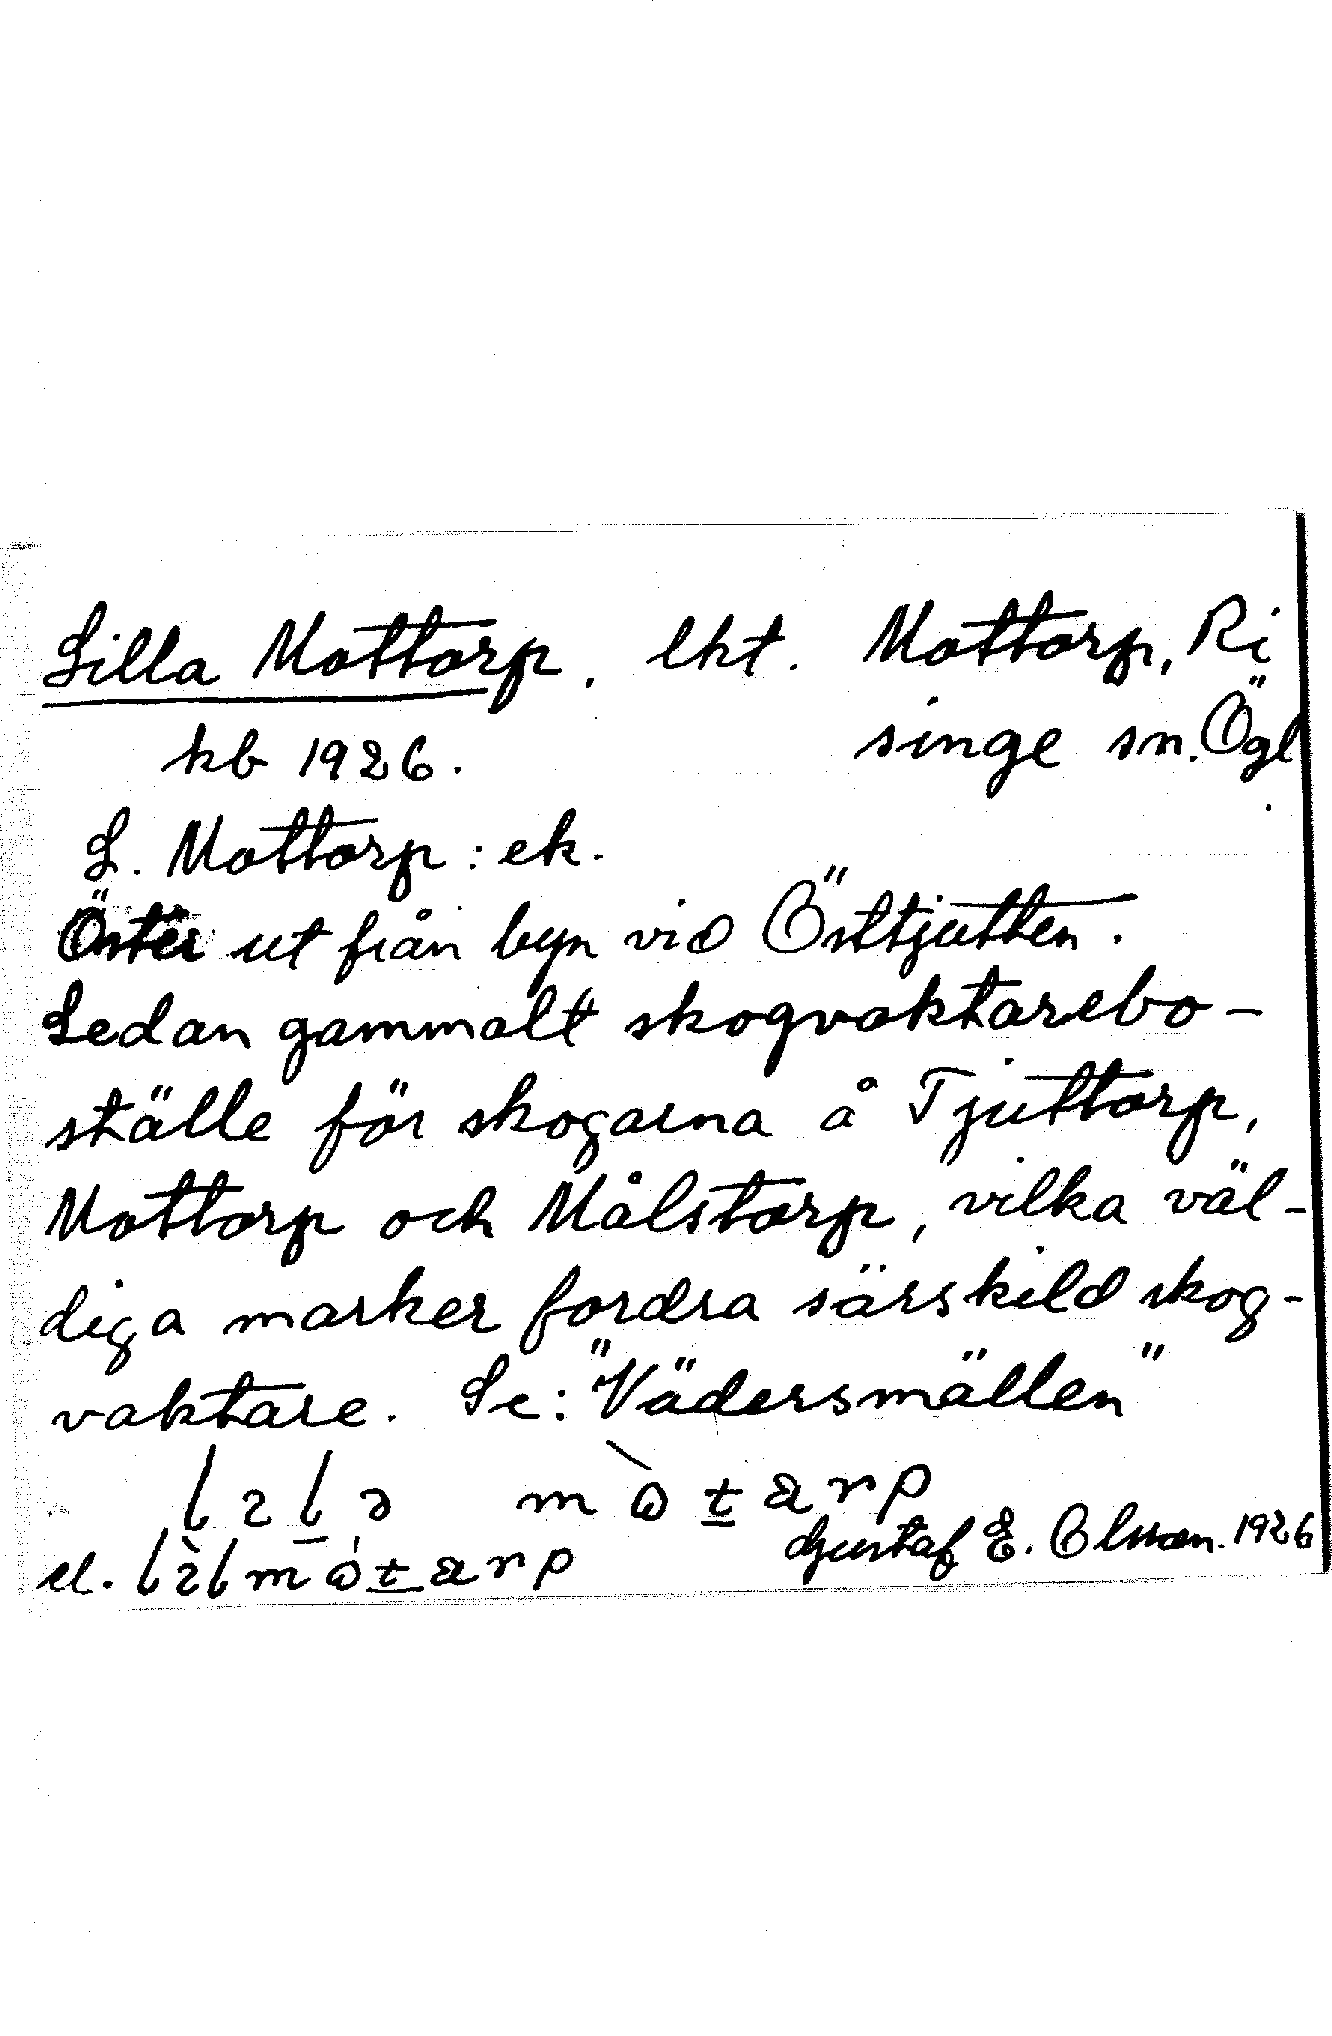 Lilla Mottorp. lht. Mottorp, Ri
kb 1926. singe sn. Ögl
L. Mottorp: ek.
Öster ut från byn vid Östtjutten.
Sedan gammalt skogvaktarebo-
ställe för skogarna å Tjuttorp,
Mottorp och Målstorp, vilka väl-
diga marker fordra särskild skog-
vaktare. Se: "Vädersmällen"
el.
Gustaf E. Olsson. 1926